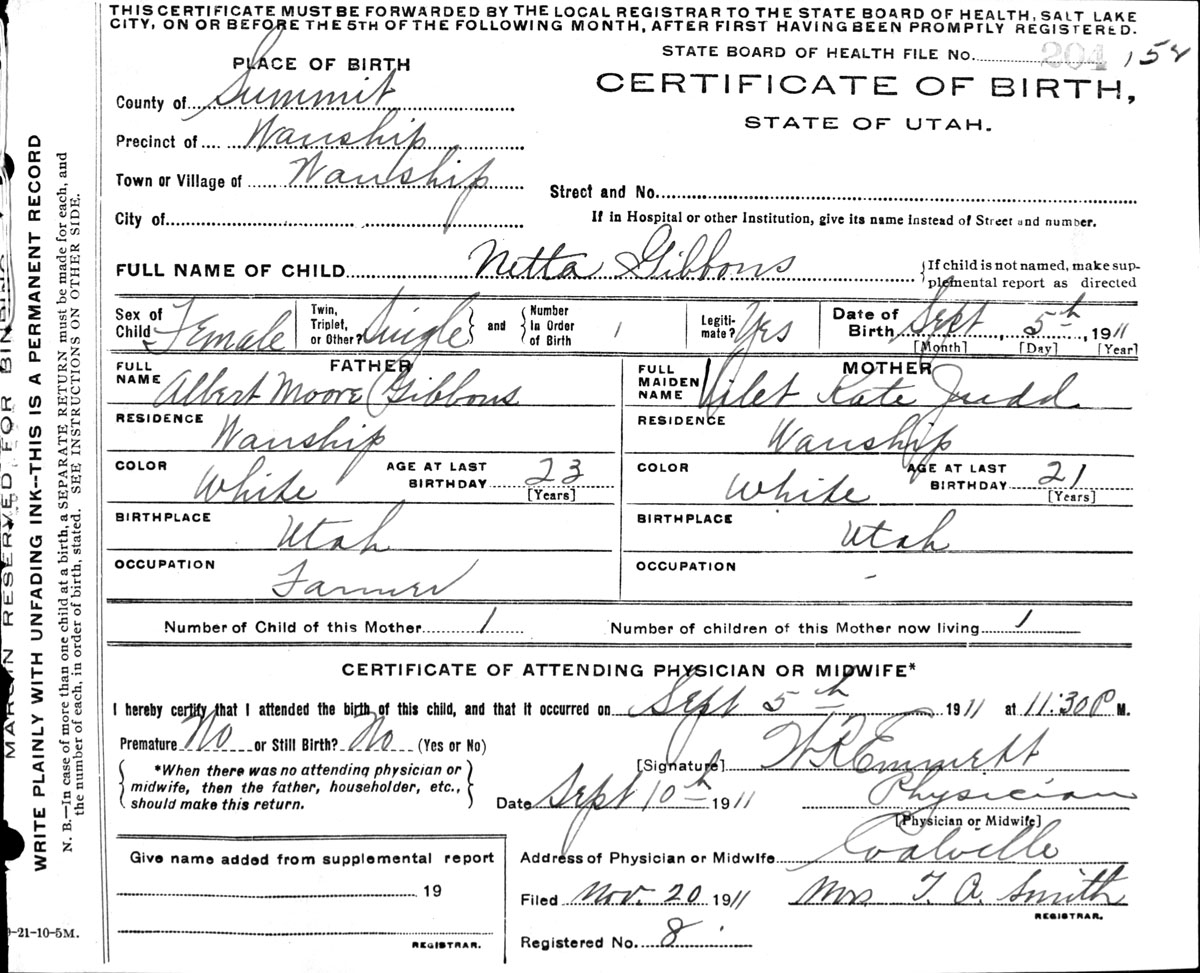 THIS CERTIFICATE MUST BE FORWARDED BY THE LOCAL REGISTRAR TO THE STATE BOARD OF HEALTH, SALT LAKE
CITY, ON OR BEFORE THE 5TH OF THE FOLLOWING MONTH, AFTER FIRST HAVING BEEN PROMPTLY REGISTERED.
STATE BOARD OF HEALTH FILE No. 204 158
PLACE OF BIRTH
CERTIFICATE OF BIRTH,
STATE OF UTAH.
County of Summit
Precinct of Wanship
Town or Village of Wanship
Street and No.
City of
If in Hospital or other Institution, give its name instead of Street and number.
FULL NAME OF CHILD Netta Gibbons
If child is not named, make sup-
plemental report as directed
Sex of Child Female
Twin, Triplet, or Other? Single
and
Number In Order of Birth 1
Legiti-mate? Yes
Date of Birth Sept 5th 1911
[Month] [Day] [Year]
FATHER
FULL NAME Albert Moore Gibbons
RESIDENCE Wanship
COLOR White
AGE AT LAST BIRTHDAY 23
[Years]
BIRTHPLACE Utah
OCCUPATION Farmer
MOTHER
FULL MAIDEN NAME Vilet Kate Judd
RESIDENCE Wanship
COLOR White
AGE AT LAST BIRTHDAY 21
[Years]
BIRTHPLACE Utah
OCCUPATION -
Number of Child of this Mother 1
Number of children of this Mother now living 1
CERTIFICATE OF ATTENDING PHYSICIAN OR MIDWIFE*
I hereby certify that I attended the birth of this child, and that it occurred on Sept 5th 1911 at 11:30 P M.
Premature No or Still Birth? No (Yes or No)
*When there was no attending physician or
midwife, then the father, householder, etc.,
should make this return.
[Signature] W R Emmett
Date Sept 10th 1911
Physician
[Physician or Midwife]
Give name added from supplemental report
19
REGISTRAR.
Address of Physician or Midwife Coalville
Filed Nov. 20 1911
Mrs T. A. Smith
REGISTRAR.
Registered No. 8
MARGIN RESERVED FOR BINDING
WRITE PLAINLY WITH UNFADING INK--THIS IS A PERMANENT RECORD
N. B.—In case of more than one child at a birth, a SEPARATE RETURN must be made for each, and
the number of each, in order of birth, stated. SEE INSTRUCTIONS ON OTHER SIDE.
-21-10-5M.